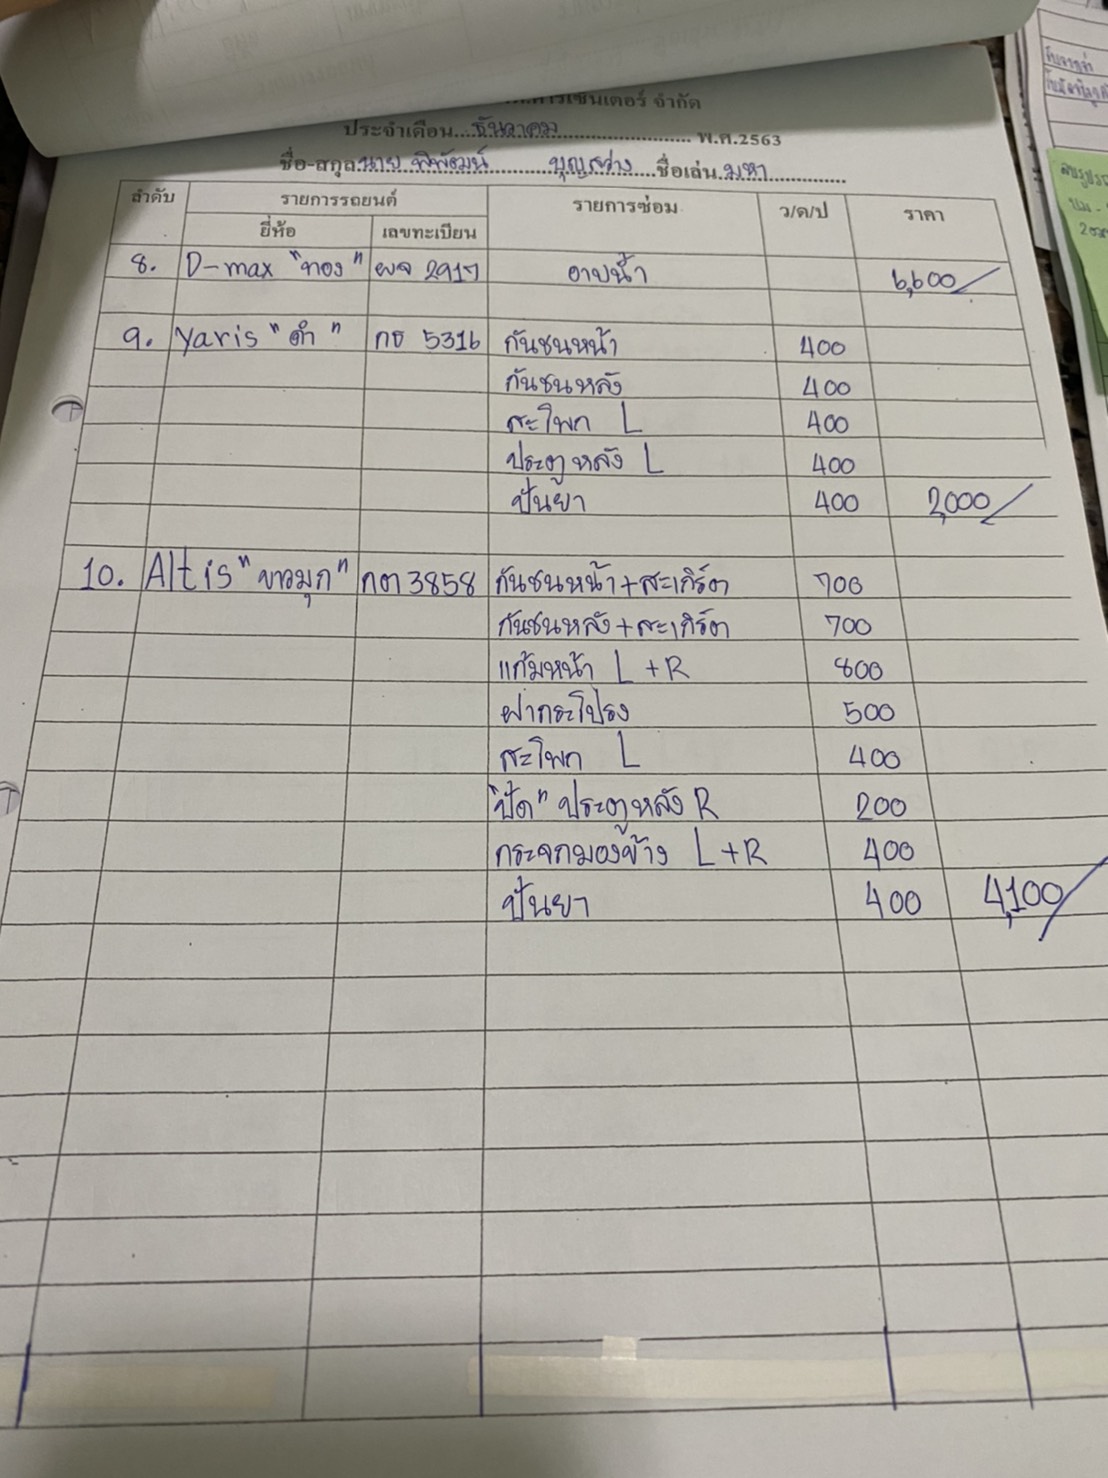 คารเซ็นเตอร์ จำกัด
ประจำเดือน...ธันวาคม... พ.ศ.2563
ชื่อ-สกุล.นาย พิพัฒน์ บุญสว่าง...ชื่อเล่น.มหา...
ลำดับ รายการรถยนต์ รายการซ่อม ว/ด/ป ราคา
ยี่ห้อ เลขทะเบียน
8. D-max "ทอง" ผจ 2917 อาบน้ำ 6,600/
9. Yaris "ดำ" กธ 5316 กันชนหน้า 400
กันชนหลัง 400
สะโพก L 400
ประตูหลัง L 400
ปั่นยา 400 2,000/
10. Altis "ขาวมุก" กต 3858 กันชนหน้า+สะเกิร์ต 700
กันชนหลัง+สะเกิร์ต 700
แก้มหน้า L+R 800
ฝากระโปรง 500
สะโพก L 400
"ปัด" ประตูหลัง R 200
กระจกมองข้าง L+R 400
ปั่นยา 400 4,100/